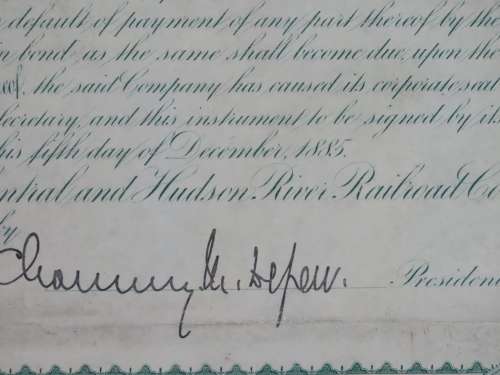 default of payment of any part thereof by the
in bond as the same shall become due, upon the
reof. the said Company has caused its corporate seal
Secretary, and this instrument to be signed by its
his fifth day of December, 1885.
entral and Hudson River Railroad Co
by
Chauncey M. Depew. President